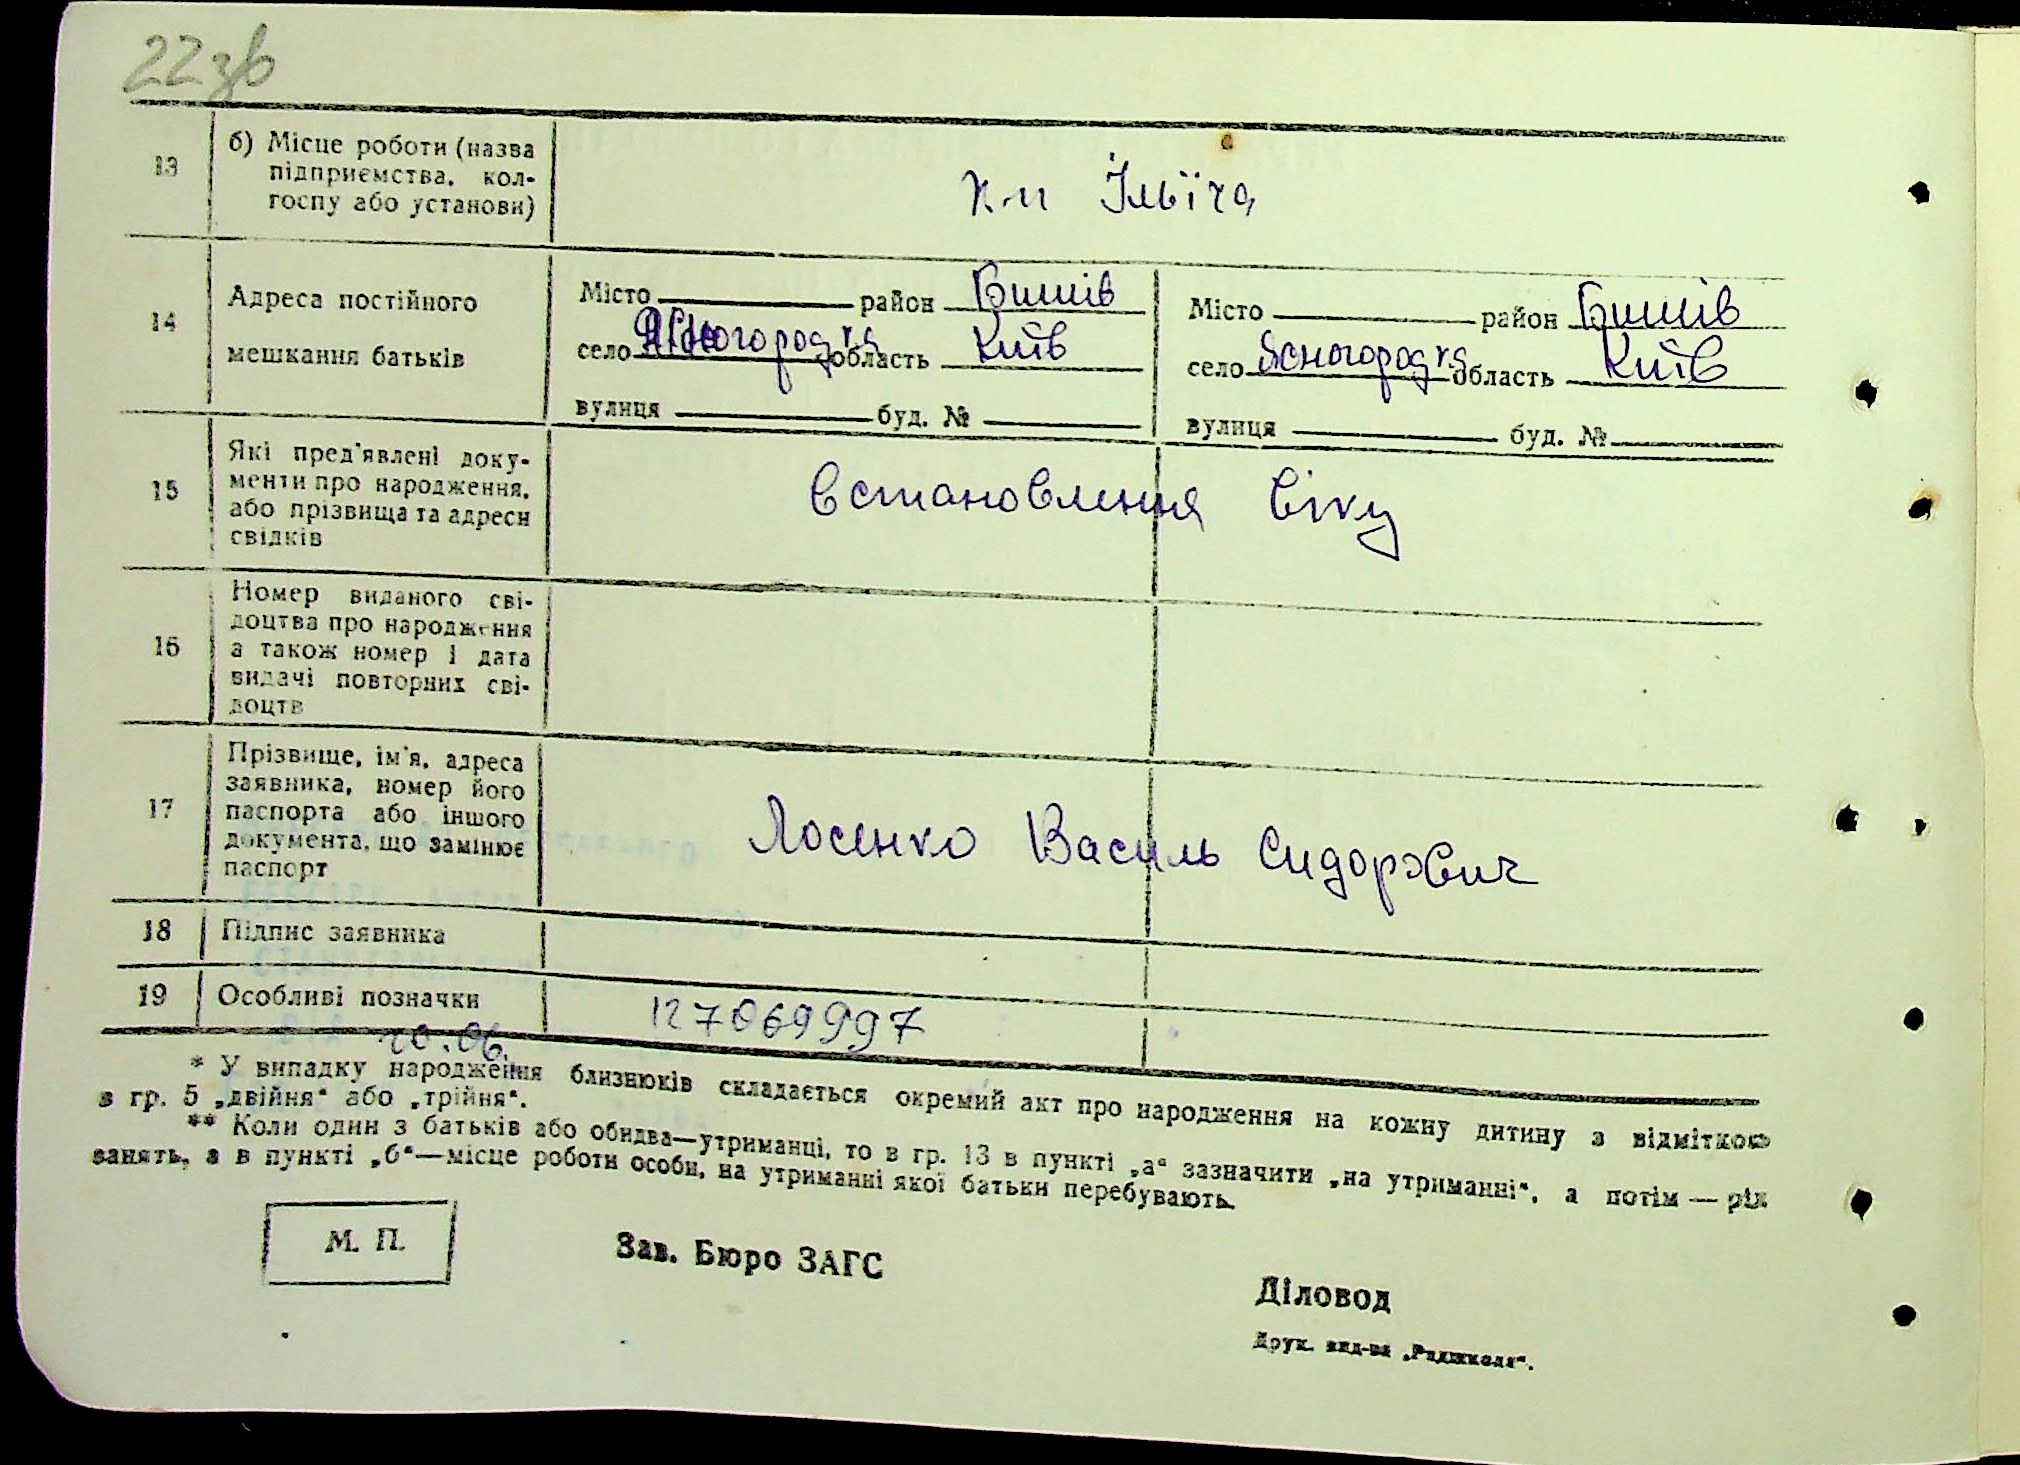 22зв
13
б) Місце роботи (назва
підприємства, кол-
госпу або установи)
к-п Ільїча
14
Адреса постійного
мешкання батьків
Місто район Бишів
село Ясногородка область Київ
вулиця буд. №
Місто район Бишів
село Ясногородка область Київ
вулиця буд. №
15
Які пред'явлені доку-
менти про народження,
або прізвища та адреси
свідків
Встановлення віку
16
Номер виданого сві-
доцтва про народження
а також номер і дата
видачі повторних сві-
доцтв
17
Прізвище, ім'я, адреса
заявника, номер його
паспорта або іншого
документа, що замінює
паспорт
Лосенко Василь Сидорович
18
Підпис заявника
19
Особливі позначки
127069997
20.06.
* У випадку народження близнюків складається окремий акт про народження на кожну дитину з відміткою
в гр. 5 „двійня“ або „трійня“.
** Коли один з батьків або обидва—утриманці, то в гр. 13 в пункті „а“ зазначити „на утриманні“, а потім — рід
занять, а в пункті „б“—місце роботи особи, на утриманні якої батьки перебувають.
М. П.
Зав. Бюро ЗАГС
Діловод
Друк. вид-ва „Радшкола“.